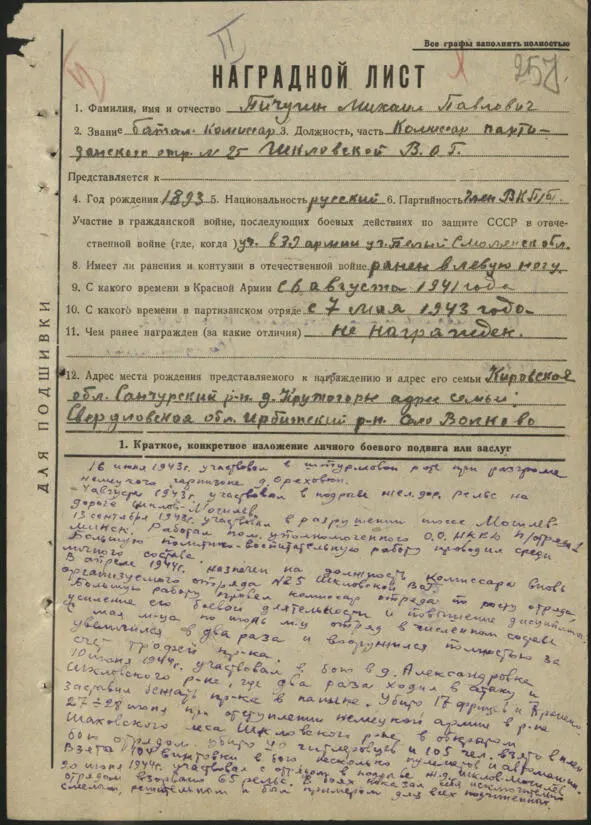 II
Все графы заполнять полностью
257.
НАГРАДНОЙ ЛИСТ
1. Фамилия, имя и отчество Пичугин Михаил Павлович
2. Звание батал. комиссар 3. Должность, часть Комиссар парти-
занского отр. N 25 Шкловской В.О.Г.
Представляется к
4. Год рождения 1893 5. Национальность русский 6. Партийность член ВКП/б.
Участие в гражданской войне, последующих боевых действиях по защите СССР в отече-
ственной войне (где, когда) уч. в 39 армии уч. Белый Смоленск обл.
8. Имеет ли ранения и контузии в отечественной войне ранен в левую ногу
9. С какого времени в Красной Армии с 6 августа 1941 года
10. С какого времени в партизанском отряде с 7 мая 1943 года
11. Чем ранее награжден (за какие отличия) не награжден.
12. Адрес места рождения представляемого к награждению и адрес его семьи Кировская
обл. Санчурский р-н д. Крутогоры адрес семьи:
Свердловская обл. Ирбитский р-н. село Волково
ДЛЯ ПОДШИВКИ
1. Краткое, конкретное изложение личного боевого подвига или заслуг
16 июня 1943г. участвовал в штурмовой роте при разгроме
немецкого гарнизона д. Ореховки.
4 августа 1943г. участвовал в подрыве жел. дор. рельс на
дороге Шклов-Могилев.
13 сентября 1943г. участвовал в разрушении шоссе Могилев-
Минск. Работал пом. уполномоченного О.О. НКВД п/отряда
Большую политико-воспитательную работу проводил среди
личного состава.
В апреле 1944г. назначен на должность комиссара вновь
организуемого отряда №25 Шкловской ВОГ.
Большую работу провел комиссар отряда по росту отряда,
усилению его боевой деятельности и повышению дисциплины.
С мая м-ца по июнь м-ц отряд в численном составе
увеличился в два раза и вооружился полностью за
счет трофей пр-ка.
10 июня 1944г. участвовал в бою в д. Александровка
Шкловского р-на, где два раза ходил в атаку и
заставил бежать пр-ка в панике. Убито 17 фрицев и
27-28 июня при отступлении немецкой армии в р-не
леса Шкловского р-на в открытом
бою отрядом убито 40 гитлеровцев и 105 чел. взято в плен
Взята 104 винтовки в бою несколько пулеметов и автомашин.
20 июня 1944г. участвовал с отрядом в подрыве ж.д. Шклов-Могилев
отрядом взорвано 65 рельс. В боях показал себя исключительно
смелым, решительным и был примером для всех подчиненных.